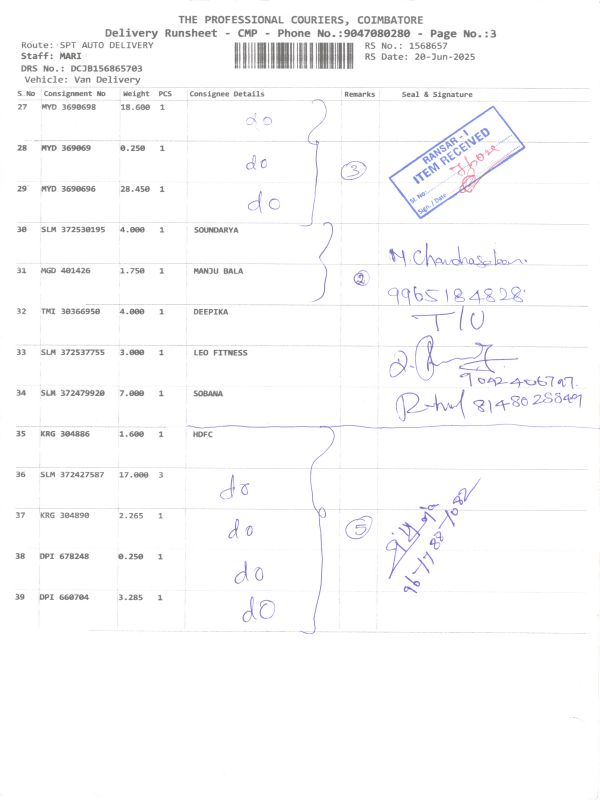 THE PROFESSIONAL COURIERS, COIMBATORE
Delivery Runsheet - CMP - Phone No.:9047080280 - Page No.:3
Route: SPT AUTO DELIVERY RS No.: 1568657
Staff: MARI RS Date: 20-Jun-2025
DRS No.: DCJB156865703
Vehicle: Van Delivery
S.No Consignment No Weight PCS Consignee Details Remarks Seal & Signature
27 MYD 3690698 18.600 1 do
28 MYD 369069 0.250 1 do 3
RANSAR-I
ITEM RECEIVED
Sl. No:
Sign. / Date
29 MYD 3690696 28.450 1 do
30 SLM 372530195 4.000 1 SOUNDARYA
31 MGD 401426 1.750 1 MANJU BALA 2 9965184828
32 TMI 30366950 4.000 1 DEEPIKA T/U
33 SLM 372537755 3.000 1 LEO FITNESS
34 SLM 372479920 7.000 1 SOBANA
35 KRG 304886 1.600 1 HDFC
36 SLM 372427587 17.000 3 do
37 KRG 304890 2.265 1 do 5
38 DPI 678248 0.250 1 do
39 DPI 660704 3.285 1 do